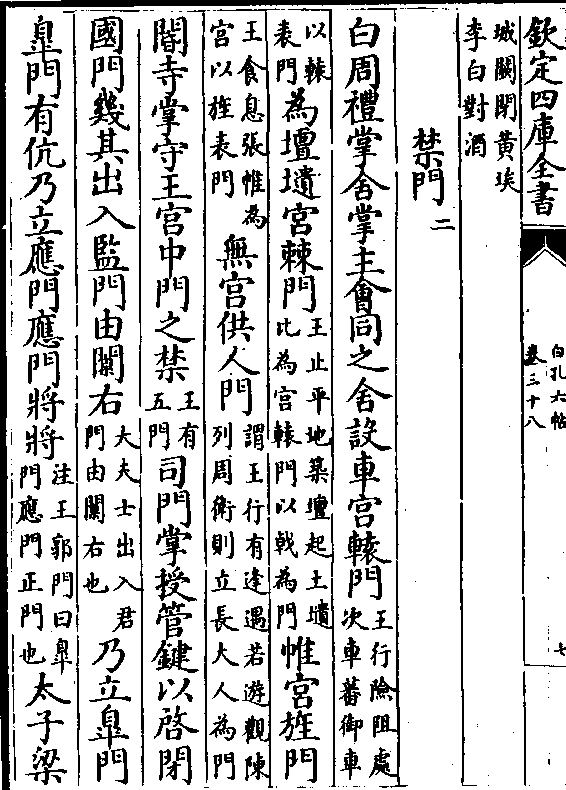 欽定四庫全書
白孔六帖
卷三十八
七
城闕閉黃埃
李白對酒
禁門二
白周禮掌舍掌主會同之舍設車宮轅門王行險阻處
次車蕃御車
以轅
表門為壇壝宮棘門王止平地築壇起土壝
比為宮轅門以戟為門帷宮旌門
王食息張帷為
宮以旌表門無宮供人門謂王行有逢遇若遊觀陳
列周衛則立長大人為門
閽寺掌守王宮中門之禁王有
五門司門掌授管鍵以啓閉
國門幾其出入監門由闑右大夫士出入君
門由闑右也乃立臯門
臯門有伉乃立應門應門將將注王郭門曰臯
門應門正門也太子梁